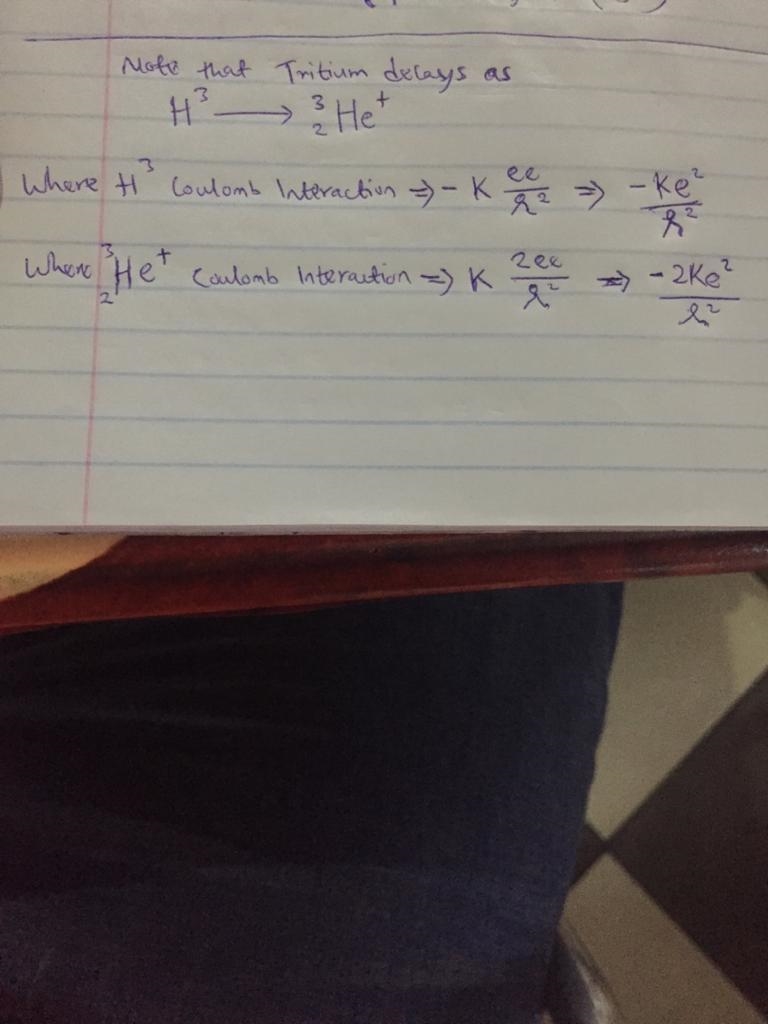 Note that Tritium decays as
H³ ⟶ ³₂He⁺
Where H³ Coulomb Interaction ⇒ - K ee/r² ⇒ -Ke²/r²
Where ³₂He⁺ Coulomb Interaction ⇒ K 2ee/r² ⇒ -2Ke²/r²